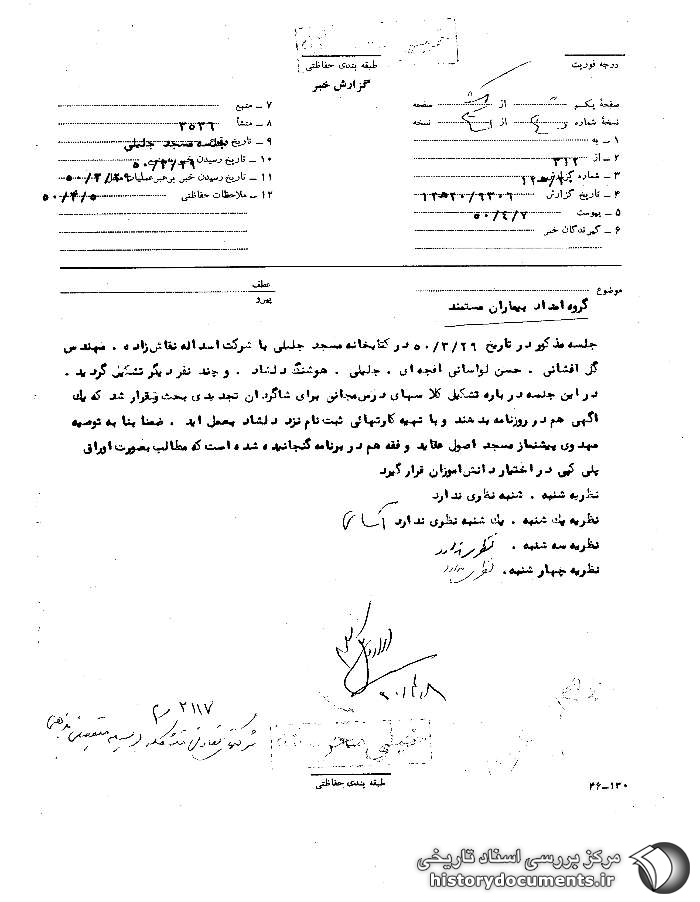 طبقه بندی حفاظتی
گزارش خبر
درجه فوریت
صفحهٔ یکم از صفحه
نسخهٔ شماره از نسخه
۱ ـ به
۲ ـ از ۳۱۲
۳ ـ شماره
۴ ـ تاریخ گزارش
۵ ـ پیوست ۵۰/۴/۲
۶ ـ گیرندگان خبر
۷ ـ منبع
۸ ـ منشأ ۳۵۳۶
۹ ـ تاریخ جلسه مسجد جلیلی
۱۰ ـ تاریخ رسیدن خبر ۵۰/۳/۲۹
۱۱ ـ تاریخ رسیدن خبر برهبر عملیات ۵۰/۳/۲۹
۱۲ ـ ملاحظات حفاظتی ۵۰/۴/۵
عطف
پیرو
موضوع
گروه امداد بیماران مستمند
جلسه مذکور در تاریخ ۵۰/۳/۲۹ در کتابخانه مسجد جلیلی با شرکت اسداله نقاش زاده . مهندس
گل افشانی . حسن لواسانی افجه ای . جلیلی . هوشنگ دلشاد . و چند نفر دیگر تشکیل گردید .
در این جلسه در باره تشکیل کلاسهای درس مجانی برای شاگردان تجدیدی بحث و قرار شد که یک
اگهی هم در روزنامه بدهند و با تهیه کارتهائی ثبت نام نزد دلشاد بعمل اید . ضمنا بنا به توصیه
مهدوی پیشنماز مسجد اصول عقاید و فقه هم در برنامه گنجانیده شده است که مطالب بصورت اوراق
پلی کپی در اختیار دانش اموزان قرار گیرد
نظریه شنبه . شنبه نظری ندارد
نظریه یک شنبه . یک شنبه نظری ندارد
نظریه سه شنبه . نظری ندارد
نظریه چهار شنبه . نظری ندارد
۲۱۱۷
طبقه بندی حفاظتی
۴۶ـ۱۳۰
مرکز بررسی اسناد تاریخی
historydocuments.ir